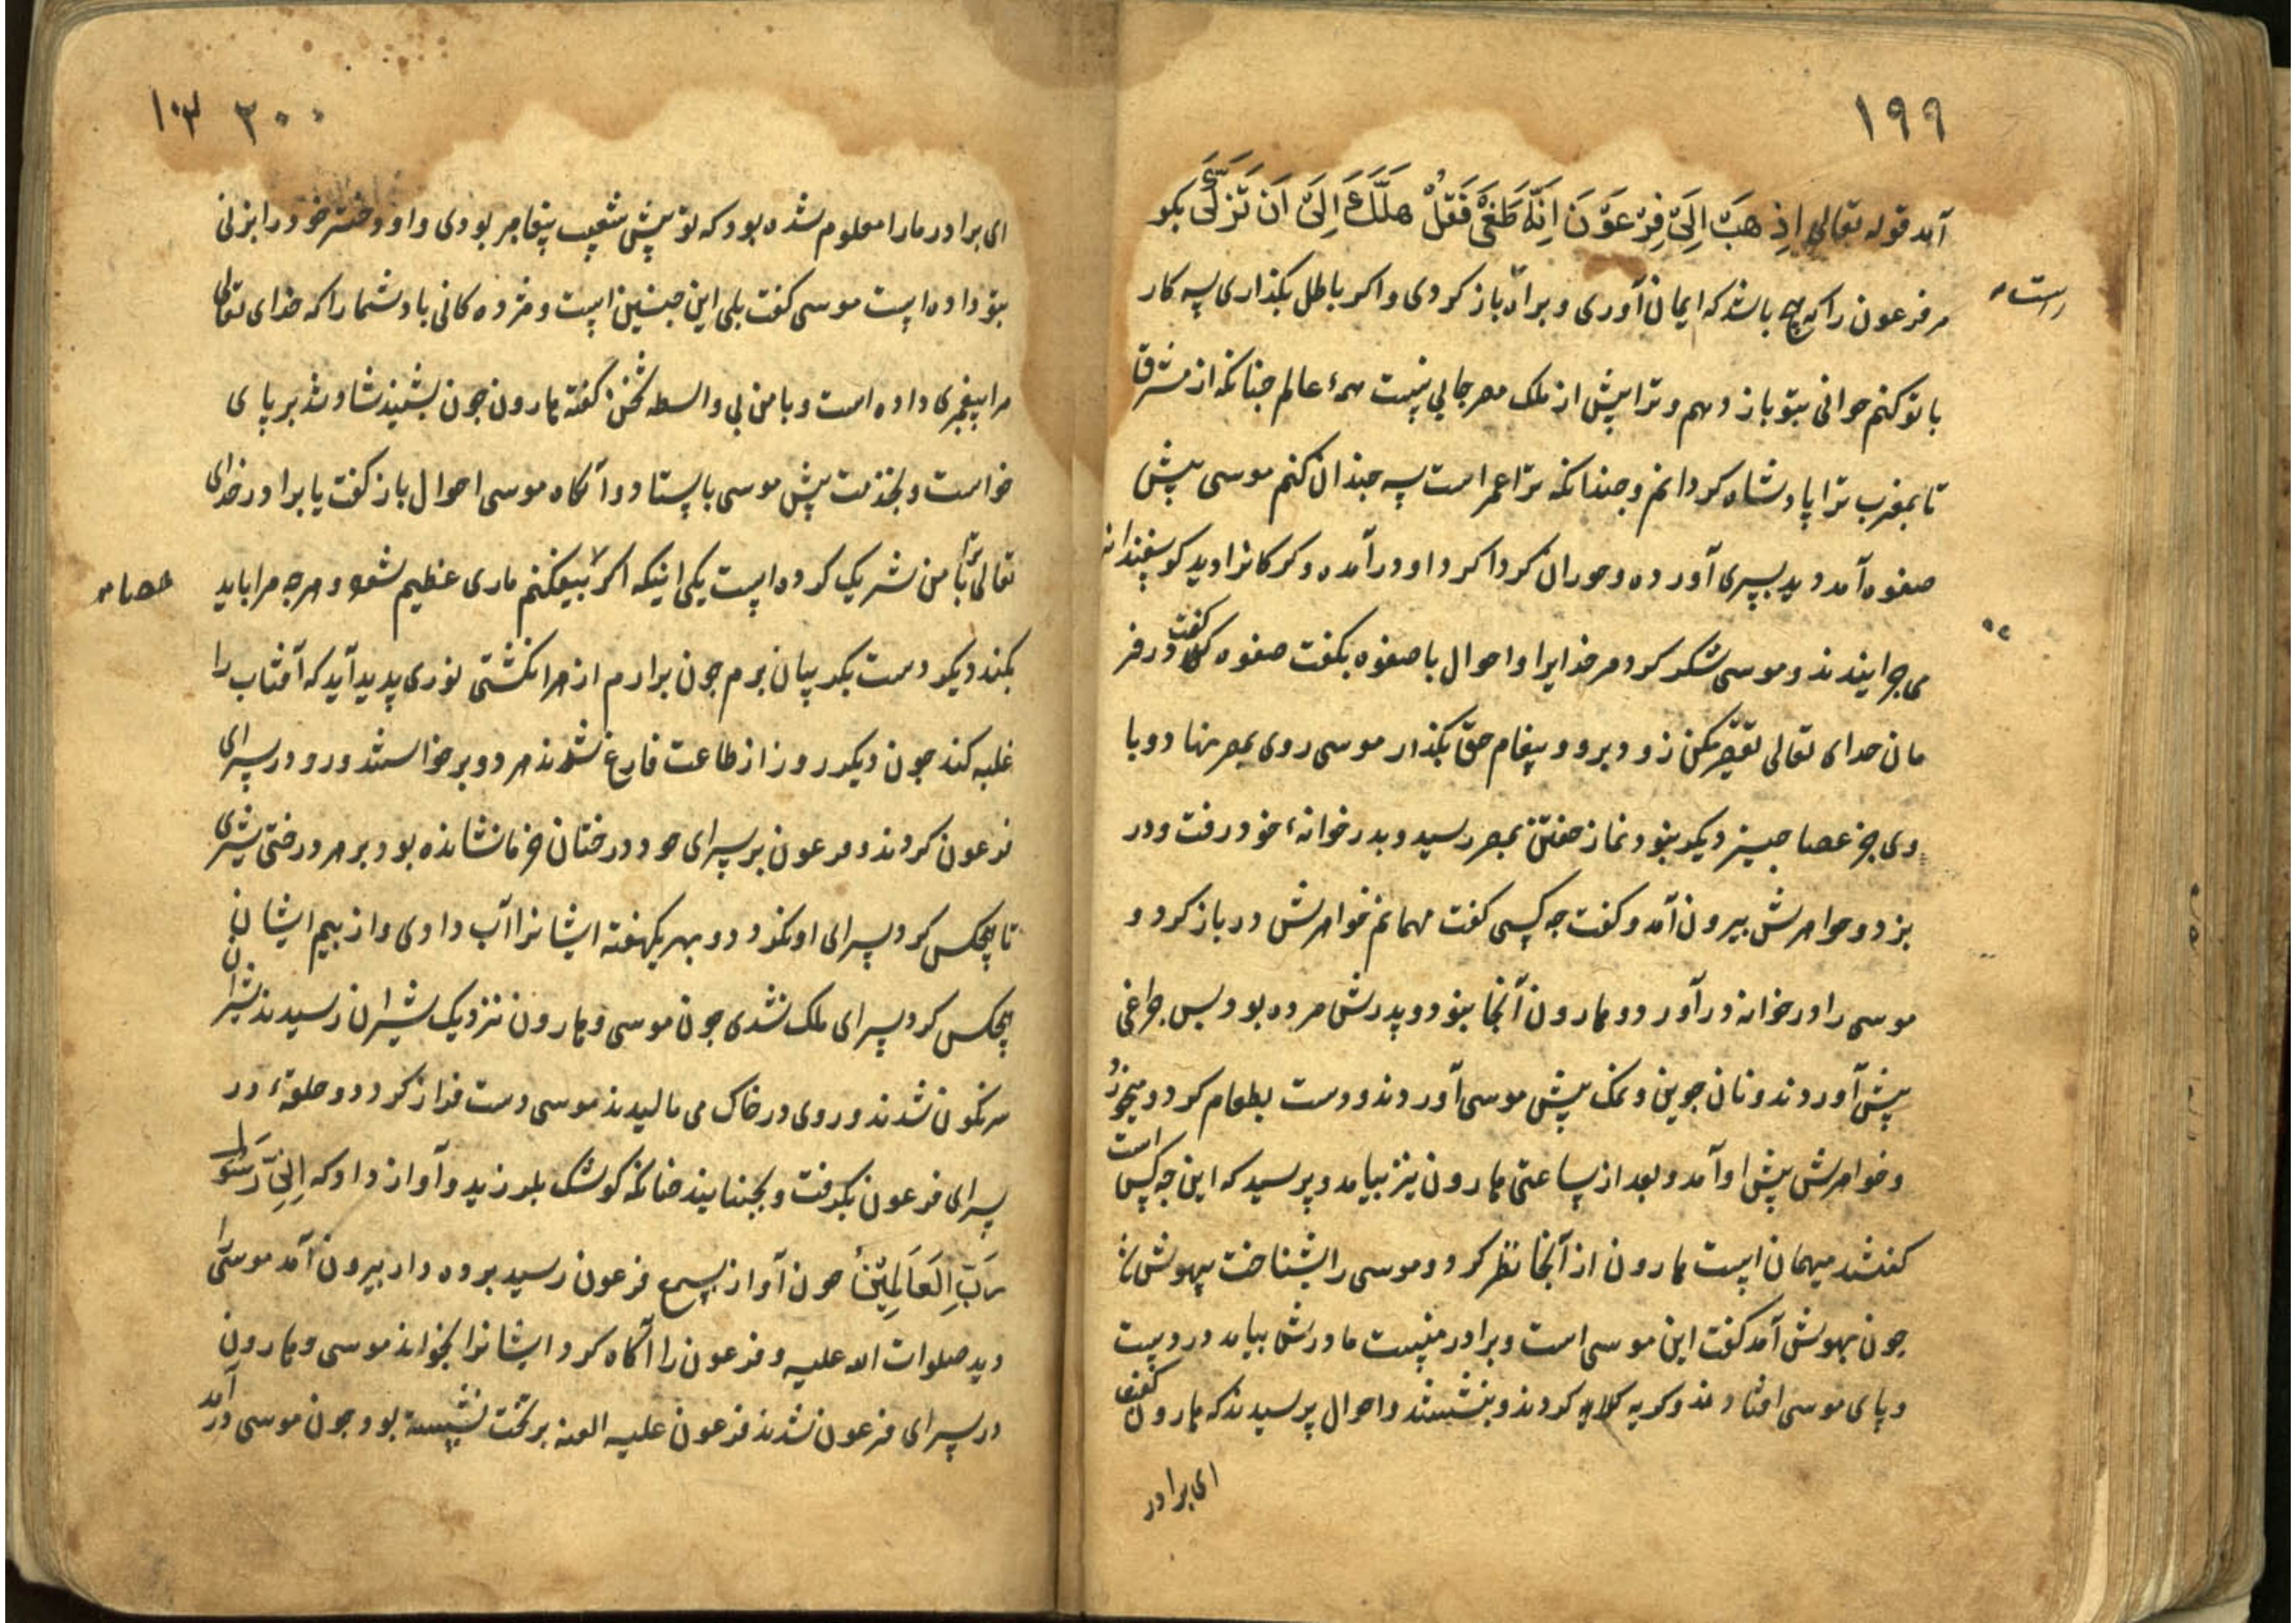 ۱۹۹
آمد قوله تعالی اِذهَبْ اِلَیٰ فِرْعَوْنَ اِنَّهُ طَغَیٰ فَقُلْ هَلْ لَكَ اِلَیٰ اَنْ تَزَكَّیٰ بکو
مر فرعون را که چه باشد که ایمان آوری و براه باز کردی و اکر باطل بکذاری سه کار
راست
با تو کنم جوانی بتو باز دهم و ترا پیش از ملک مصر جایی نیست همهٔ عالم جنانکه از مشرق
تا بمغرب ترا پادشاه کردانم و جندانکه ترا عمر است سه جندان کنم موسی پیش
صفوه آمد دید پسری آورده و حوران کردا کرد او درآمده و کرکانرا دید کوسفندان
می جرانیدند و موسی شکر کرد مر خدایرا و احوال با صفوه بکفت صفوه کفت در فر
مان خدای تعالی تقصیر مکن زود برو و پیغام حق بکذار موسی روی بمصر نهاد و با
وی جز عصا جیز دیکر نبود نماز خفتن بمصر رسید و بدر خوانهٔ خود رفت و در
بزد و خواهرش بیرون آمد و کفت جه کسی کفت مهمانم خواهرش در باز کرد و
موسی را در خوانه در آورد و هارون آنجا نبود و پدرش مرده بود پس جراغی
پیش آوردند و نان جوین و نمک پیش موسی آوردند و دست بطعام کرد و میخورد
و خواهرش پیش او آمد و بعد از ساعتی هارون نیز بیامد و پرسید که این جه کس است
کفتند میهمان است هارون از آنجا نظر کرد و موسی را بشناخت بیهوش شد
جون بهوش آمد کفت این موسی است و برادر منست مادرش بیامد در دست
و پای موسی افتادند و کریه کردند و بنشستند و احوال پرسیدند که هارون کفت
ای برادر
۲۰۰ ۱۰۳
ای برادر ما را معلوم شده بود که تو پیش شعیب پیغامبر بودی و او دختر خود را بزنی
بتو داده است موسی کفت بلی این جنین است و مژده کانی باد شما را که خدای تعالی
مرا پیغمبری داده است و با من بی واسطه سخن کفته هارون جون بشنید شاد شد بر پای
خواست و بخدمت پیش موسی بایستاد و آنکاه موسی احوال باز کفت یا برادر خدای
تعالی ترا با من شریک کرده است یکی اینکه اکر بیفکنم ماری عظیم شود و هرجه مرا باید
عصا
بکند دیکر دست بکریبان برم جون برآرم از هر انکشتی نوری پدید آید که آفتاب را
غلبه کند جون دیکر روز از طاعت فارغ شدند هر دو برخواستند و رو در سرای
فرعون کردند و فرعون بر سرای خود درختان خرما نشانده بود بر هر درختی شیری
تا هیجکس کرد سرای او نکردد و بهر یکهفته ایشانرا آب دادی و از بیم ایشان
هیجکس کرد سرای ملک نشدی جون موسی و هارون نزدیک شیران رسیدند شیران
سرنکون شدند و روی در خاک می مالیدند موسی دست فراز کرد و حلقهٔ در
سرای فرعون بکرفت و بجنبانید جنانکه کوشک بلرزید و آواز داد که اِنِّی رَسُولُ
رَبِّ الْعَالَمِیْنَ جون آواز بسمع فرعون رسید پرده دار بیرون آمد موسی را
دید صلوات الله علیه و فرعون را آکاه کرد ایشانرا بخواند موسی و هارون
در سرای فرعون شدند فرعون علیه العنه بر تخت نشسته بود جون موسی درآمد